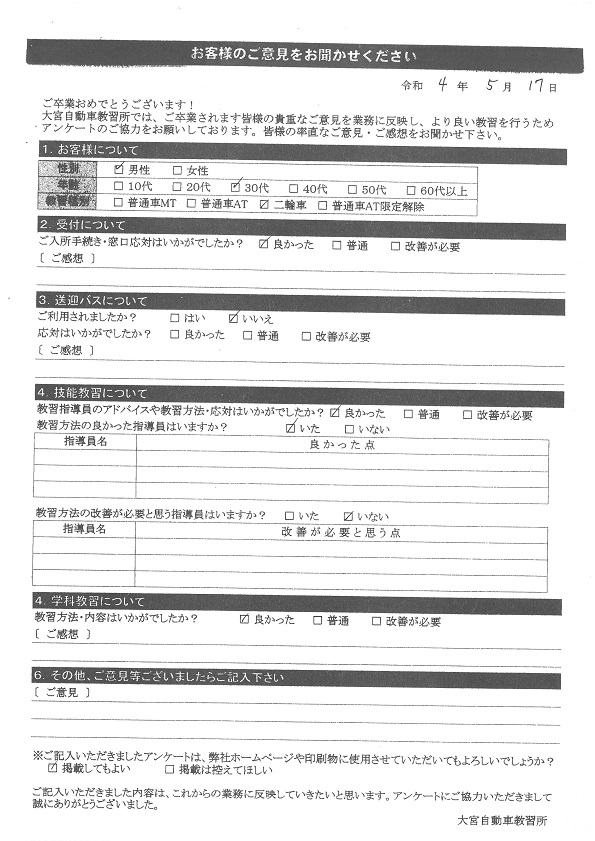 お客様のご意見をお聞かせください
令和 4 年 5 月 17 日
ご卒業おめでとうございます！
大宮自動車教習所では、ご卒業されます皆様の貴重なご意見を業務に反映し、より良い教習を行うため
アンケートのご協力をお願いしております。皆様の率直なご意見・ご感想をお聞かせ下さい。
1. お客様について
性別 ☑ 男性 □ 女性
年齢 □ 10代 □ 20代 ☑ 30代 □ 40代 □ 50代 □ 60代以上
教習種別 □ 普通車MT □ 普通車AT ☑ 二輪車 □ 普通車AT限定解除
2. 受付について
ご入所手続き・窓口応対はいかがでしたか？ ☑ 良かった □ 普通 □ 改善が必要
〔 ご感想 〕
3. 送迎バスについて
ご利用されましたか？ □ はい ☑ いいえ
応対はいかがでしたか？ □ 良かった □ 普通 □ 改善が必要
〔 ご感想 〕
4. 技能教習について
教習指導員のアドバイスや教習方法・応対はいかがでしたか？ ☑ 良かった □ 普通 □ 改善が必要
教習方法の良かった指導員はいますか？ ☑ いた □ いない
指導員名 良かった点
教習方法の改善が必要と思う指導員はいますか？ □ いた ☑ いない
指導員名 改善が必要と思う点
4. 学科教習について
教習方法・内容はいかがでしたか？ ☑ 良かった □ 普通 □ 改善が必要
〔 ご感想 〕
6. その他、ご意見等ございましたらご記入下さい
〔 ご意見 〕
※ご記入いただきましたアンケートは、弊社ホームページや印刷物に使用させていただいてもよろしいでしょうか？
☑ 掲載してもよい □ 掲載は控えてほしい
ご記入いただきました内容は、これからの業務に反映していきたいと思います。アンケートにご協力いただきまして
誠にありがとうございました。
大宮自動車教習所